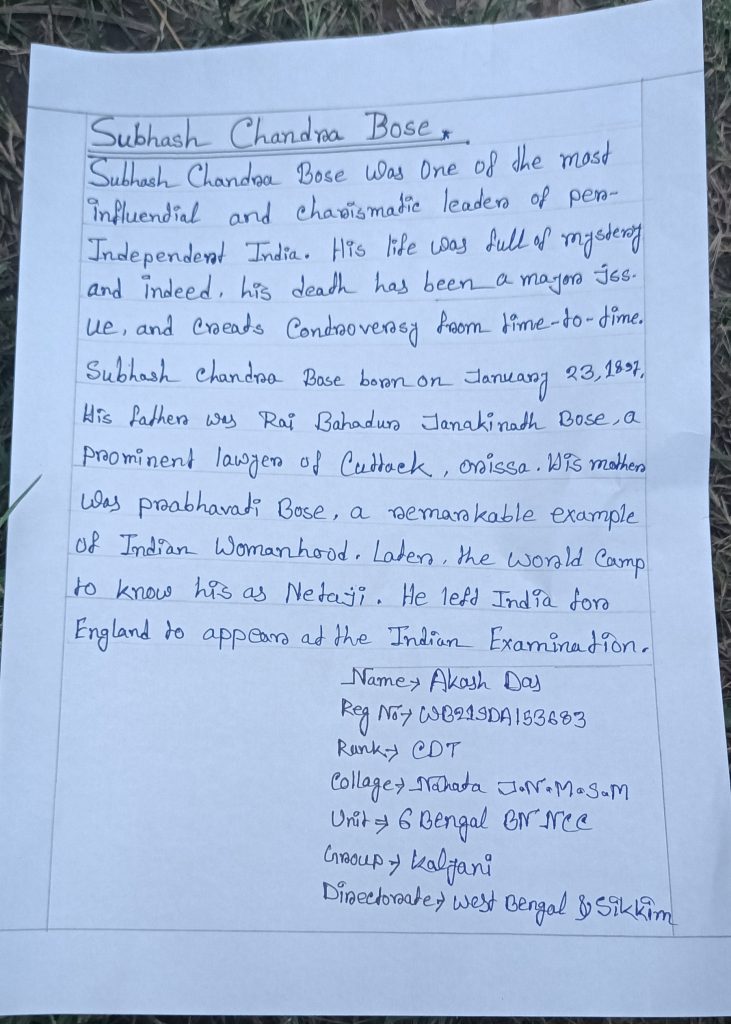 Subhash Chandra Bose *
Subhash Chandra Bose was One of the most
influential and charismatic leader of per-
Independent India. His life was full of mystery
and indeed, his death has been a major iss-
ue, and creats Controversy from time-to-time.
Subhash chandra Base born on January 23, 1897,
His father was Rai Bahadur Janakinath Bose, a
Prominent lawyer of Cuttack, orissa. His mother
was prabhavati Bose, a remarkable example
of Indian Womanhood. Later, the world Camp
to know his as Netaji. He left India for
England to appear at the Indian Examination.
Name→ Akash Das
Reg No→ WB21SDA153683
Rank→ CDT
Collage→ Nahata J.N.M.S.M
Unit→ 6 Bengal BN NCC
Group→ Kalyani
Directorate→ West Bengal & Sikkim